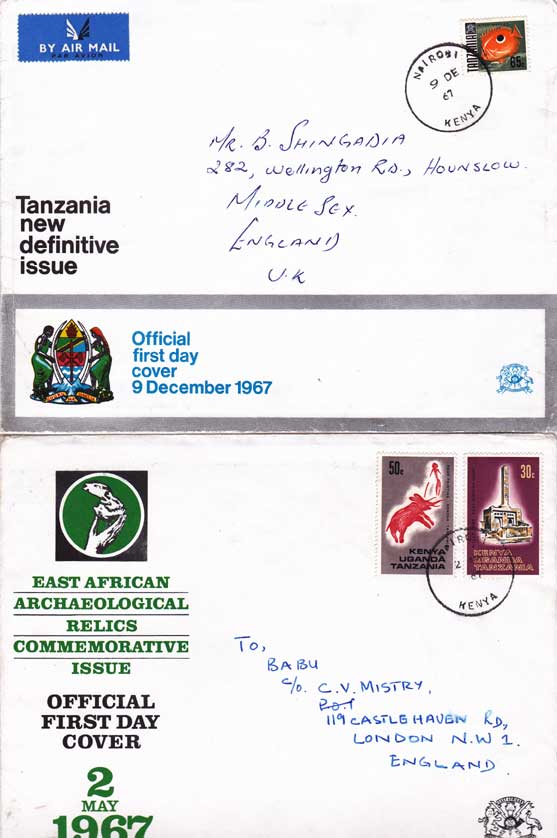 BY AIR MAIL
PAR AVION
TANZANIA
65c
NAIROBI
9 DE
67
KENYA
MR. B. SHINGADIA
282, Wellington RD., HOUNSLOW.
MIDDLE SEX.
ENGLAND
U.K
Tanzania
new
definitive
issue
Official
first day
cover
9 December 1967
50c
KENYA
UGANDA
TANZANIA
30c
KENYA
UGANDA
TANZANIA
2
67
KENYA
EAST AFRICAN
ARCHAEOLOGICAL
RELICS
COMMEMORATIVE
ISSUE
OFFICIAL
FIRST DAY
COVER
2
MAY
1967
TO,
BABU
C/o. C.V. MISTRY,
119 CASTLEHAVEN RD,
LONDON N.W 1.
ENGLAND